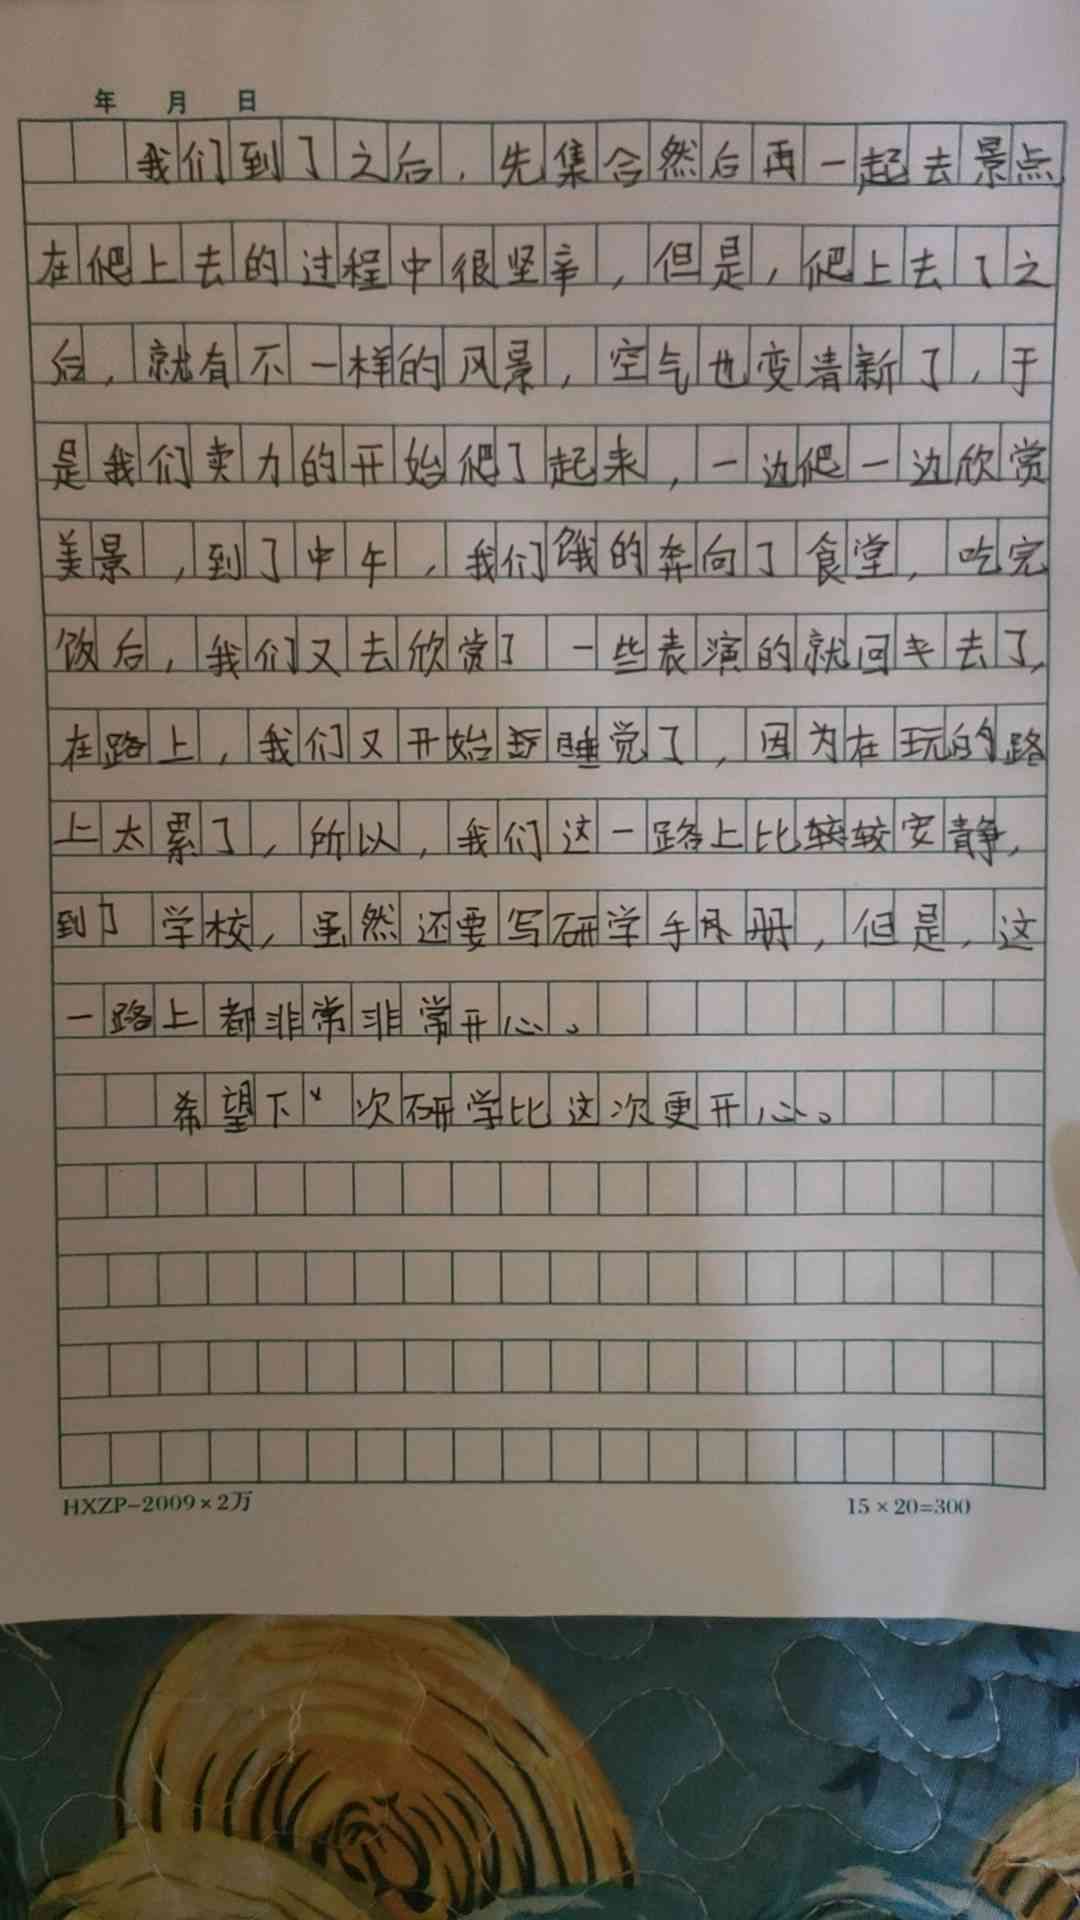 年 月 日
我们到了之后，先集合然后再一起去景点
在爬上去的过程中很坚辛，但是，爬上去了之
后，就有不一样的风景，空气也变清新了，于
是我们卖力的开始爬了起来，一边爬一边欣赏
美景，到了中午，我们饿的奔向了食堂，吃完
饭后，我们又去欣赏了一些表演的就回去了，
在路上，我们又开始睡觉了，因为在玩的路
上太累了，所以，我们这一路上比较安静，
到了学校，虽然还要写研学手册，但是，这
一路上都非常非常开心。
希望下次研学比这次更开心。
HXZP-2009×2万 15×20=300